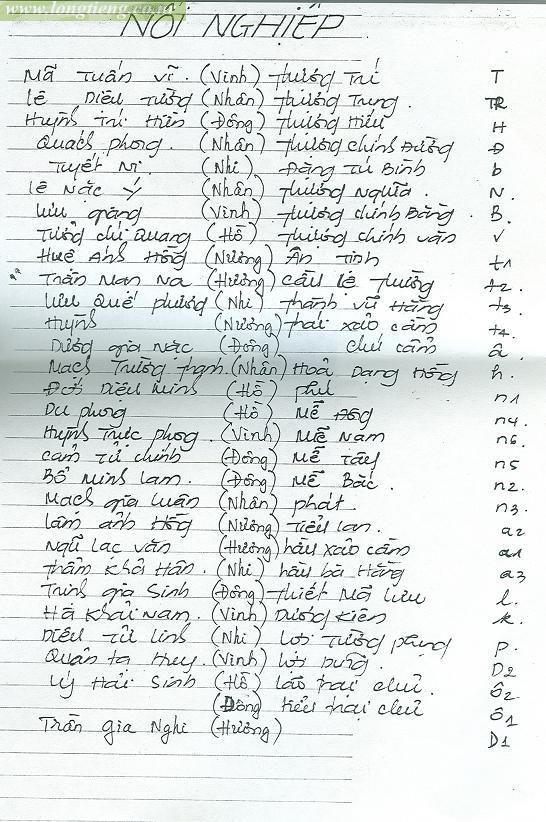 www.longtieng.com
NỐI NGHIỆP
Mã Tuấn Vĩ. (Vinh) Thượng Trí T
Lê Diệu Tường (Nhân) Thượng Trung. TR
Huỳnh Trí Hữu (Đông) Thượng Hữu H
Quách Phong. (Nhân) Thượng Chính Đường Đ
Tuyết Ni (Nhi) Đặng Tú Bình b
Lê Nặc Ý (Nhân) Thượng Nghĩa. N.
Lưu giảng (Vinh) Thượng Chính Bằng. B.
Tưởng Chí Quang (Hồ) Thượng Chính Văn V
Huệ Anh Hồng (Nương) Ân Tình t1
Trần Man Na (Hương) Cầu Lệ Thường t2.
Lưu Quế Phương (Nhi) Thanh Vũ Hằng t3
Huỳnh (Nương) Thái Xảo Cầm t4
Dương gia Nặc (Đông) Chú Cẩm â
Mạch Trường Thạnh. (Nhân) Hoả Dạng Hồng h.
Đới Diệu Minh (Hồ) Phú n1
Du Phong (Hồ) Mễ Đông n4.
Huỳnh Trực Phong. (Vinh) Mễ Nam n6.
Cam Tử Chính (Đông) Mễ Tây n5
Bồ Minh Lam. (Đông) Mễ Bắc. n2.
Mạch gia Luân (Nhân) Phát. n3.
Lâm Ánh Hồng (Nương) Tiểu Lan. a2
Ngũ Lạc Văn (Hương) hầu xảo cầm a1
Thẩm Khả Hân. (Nhi) hầu bà Hằng a3
Trịnh gia Sinh (Đông) Thiết Mã Lưu l.
Hà Khải Nam. (Vinh) Dương Kiên k.
Diêu Tử Linh (Nhi) Lợi Tường Phụng p.
Quan ta Huy. (Vinh) Lợi Dũng. D2
Lý Hải Sinh (Hồ) lão trại chủ. ô2
(Đông) tiểu trại chủ ô1
Trần gia Nghi (Hương) D1